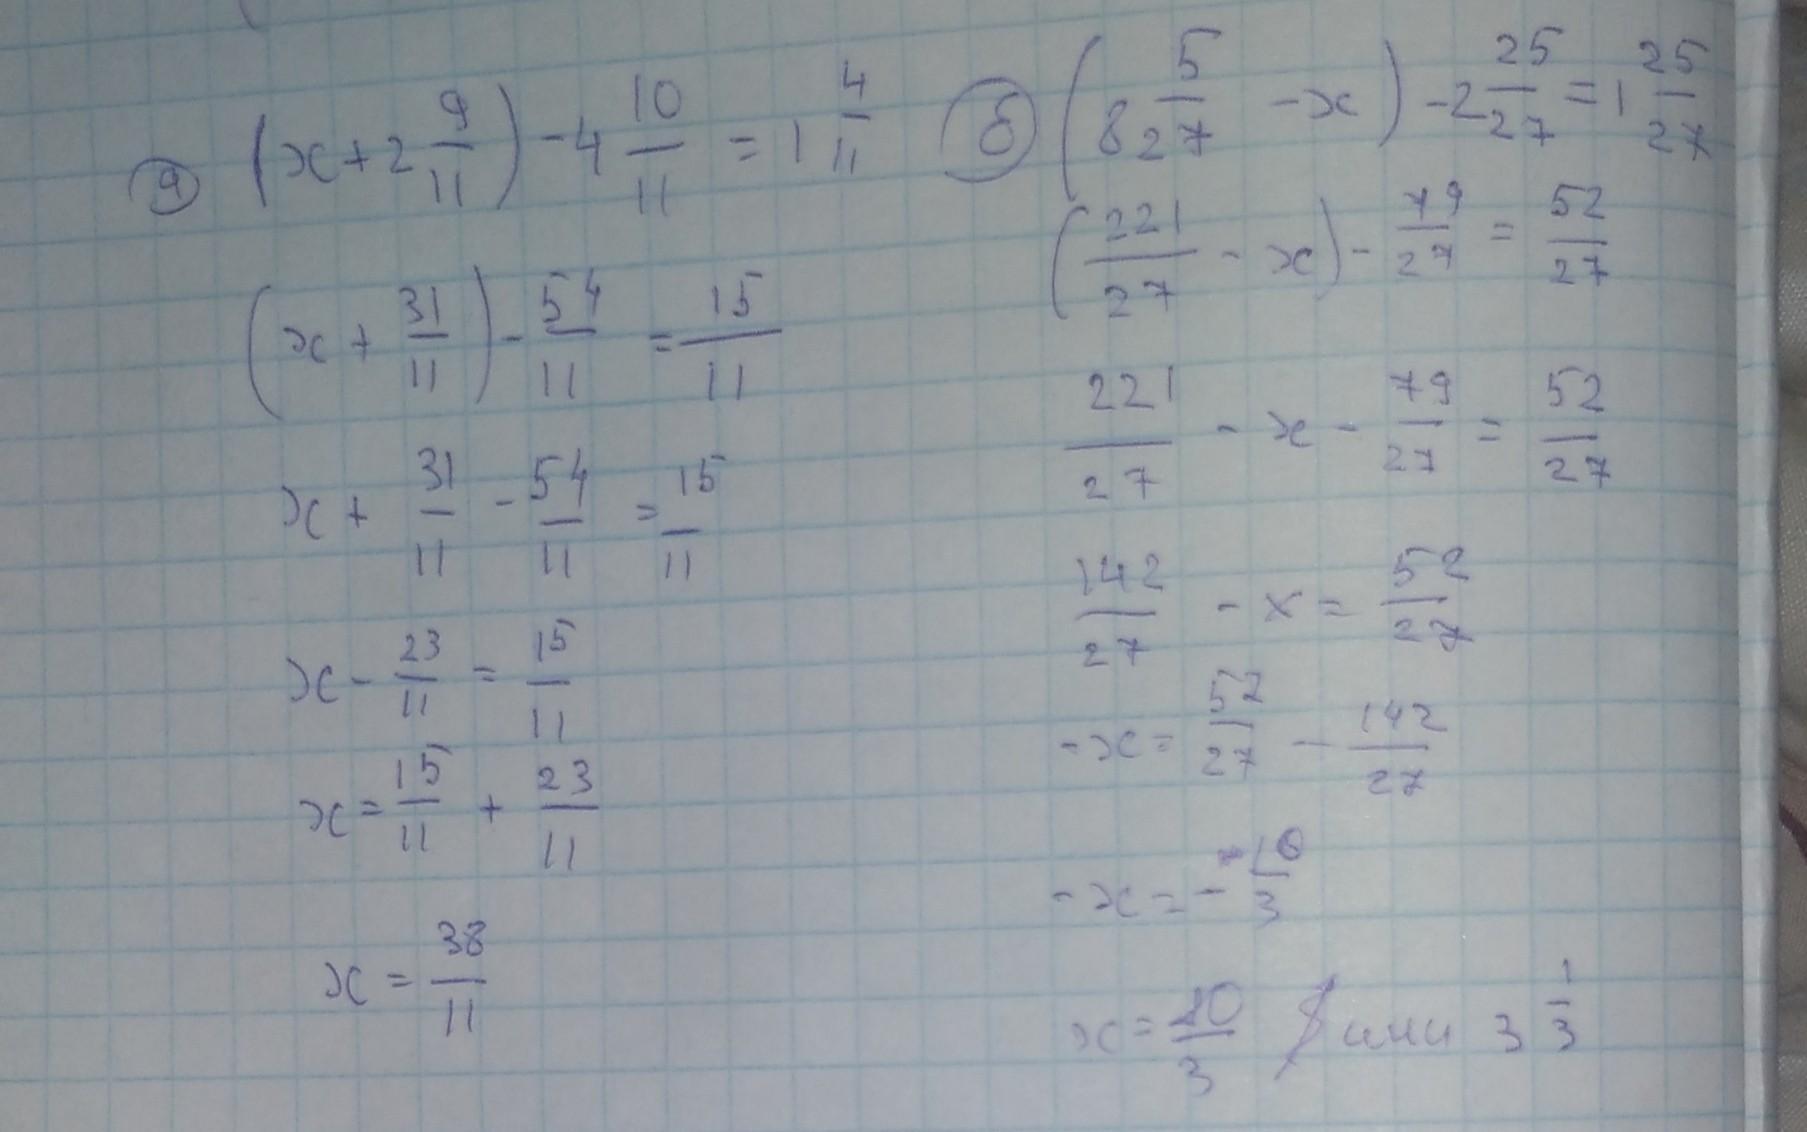 а) (x + 2 9/11) - 4 10/11 = 1 4/11
(x + 31/11) - 54/11 = 15/11
x + 31/11 - 54/11 = 15/11
x - 23/11 = 15/11
x = 15/11 + 23/11
x = 38/11
б) (8 5/27 - x) - 2 25/27 = 1 25/27
(221/27 - x) - 79/27 = 52/27
221/27 - x - 79/27 = 52/27
142/27 - x = 52/27
-x = 52/27 - 142/27
-x = - 10/3
x = 10/3 или 3 1/3